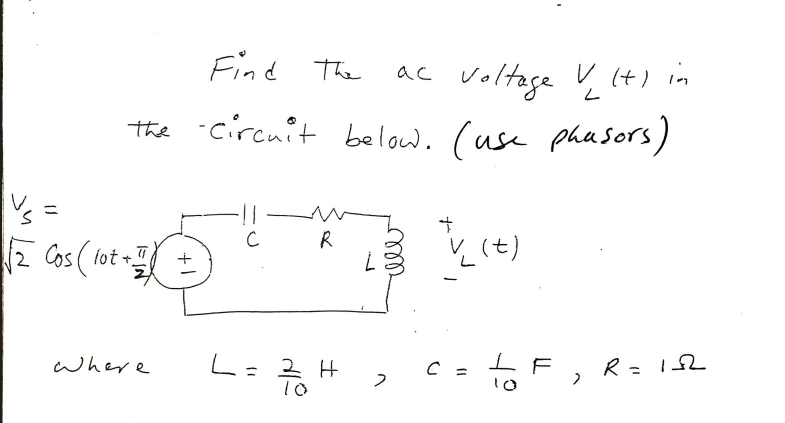 Find the ac voltage V_L(t) in
the circuit below. (use phasors)
V_s =
√2 Cos(10t + π/2)
+
-
C
R
L
+
V_L(t)
-
where L = 2/10 H , C = 1/10 F , R = 1Ω